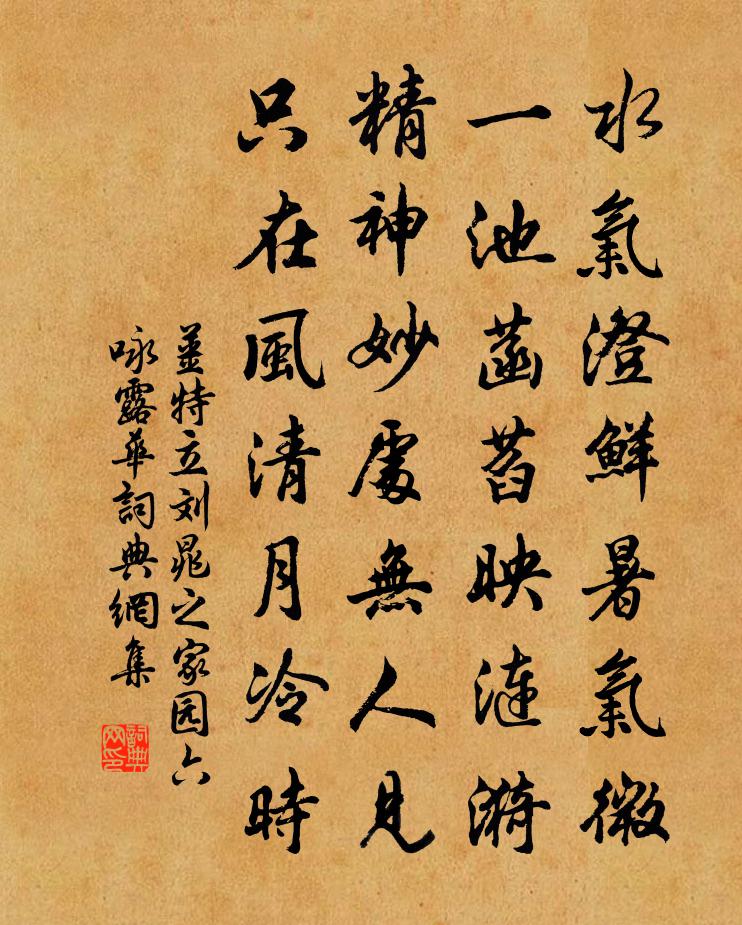 水氣澄鮮暑氣微
一池菡萏映漣漪
精神妙處無人見
只在風清月冷時
薑特立刘晁之家园六
咏露華詞典網集
詞典
网印